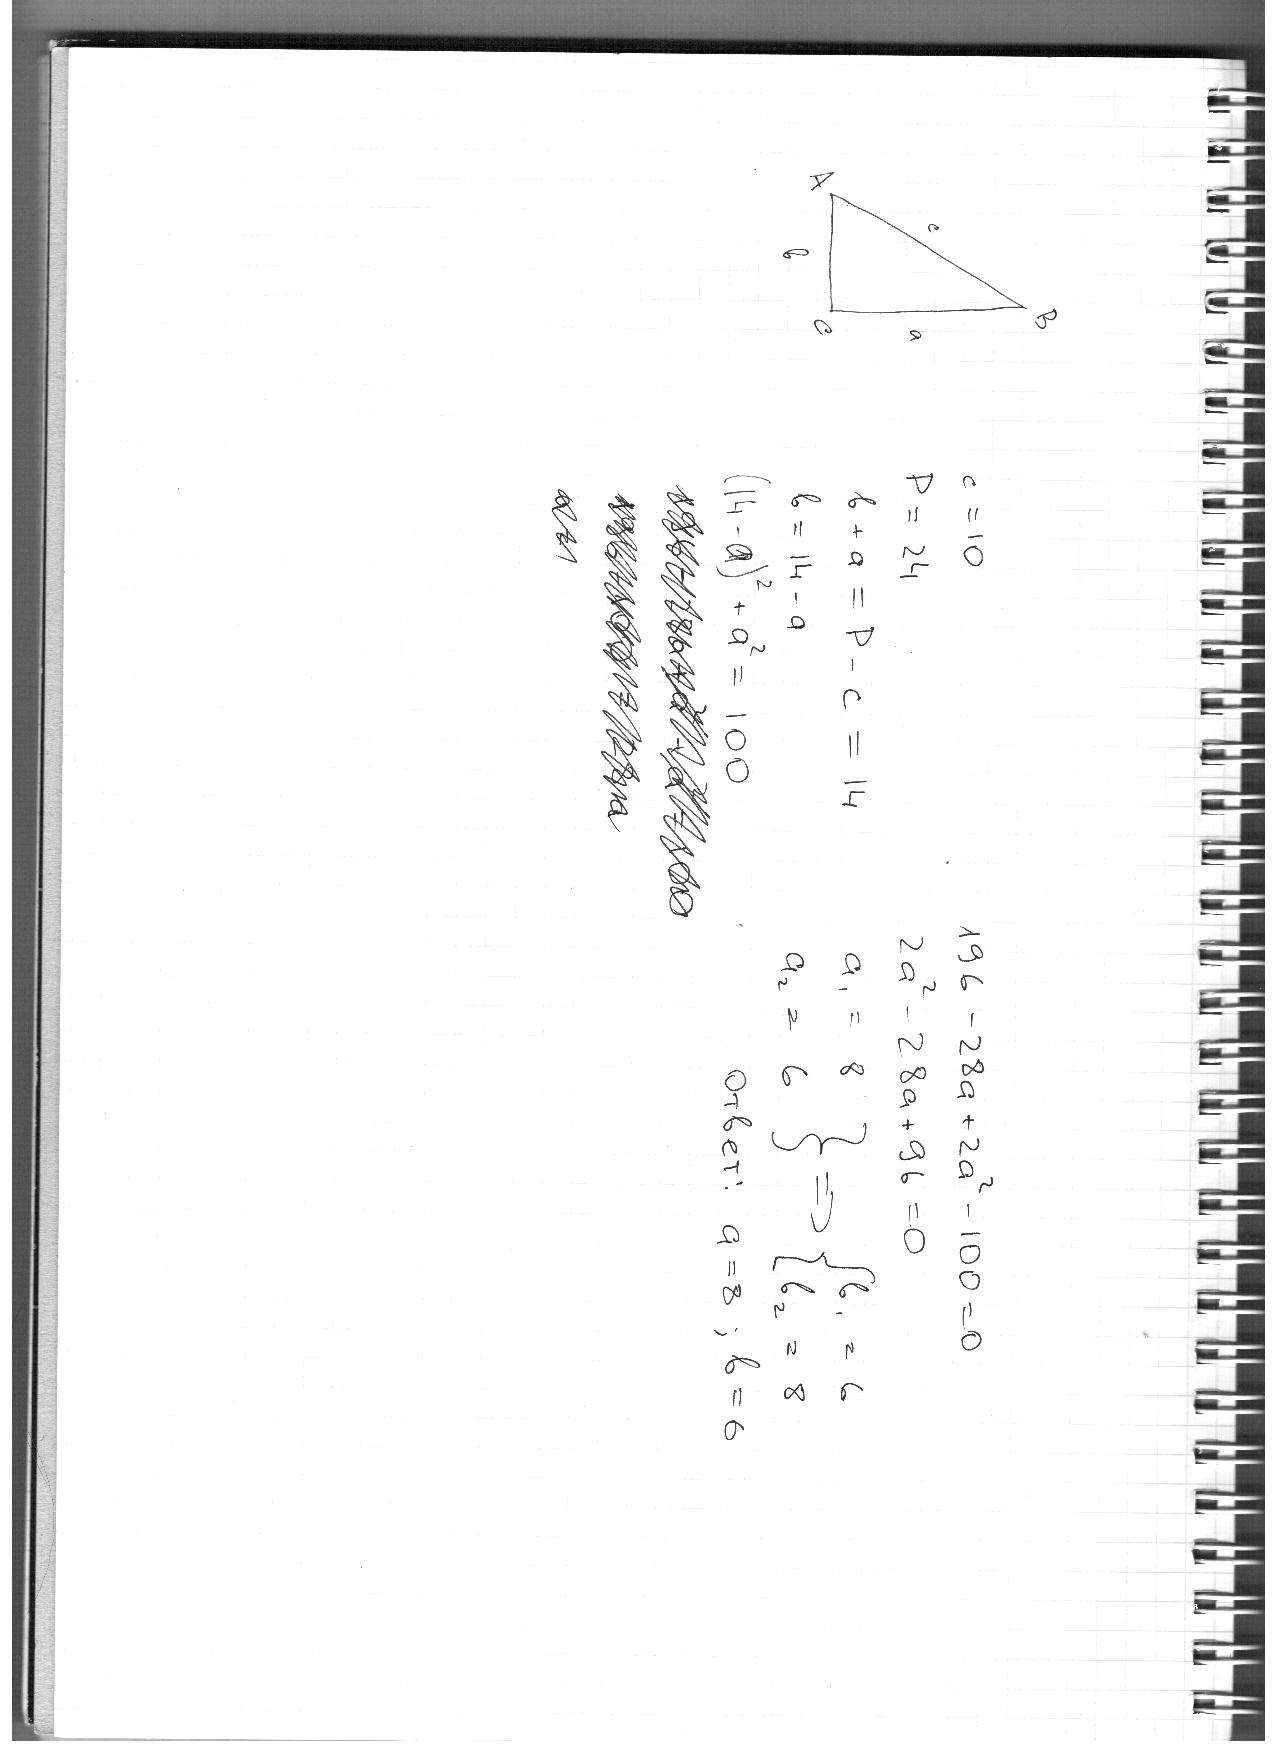 B
c
a
A
b
C
c = 10
P = 24
b + a = P - c = 14
b = 14 - a
(14 - a)² + a² = 100
196 - 28a + 2a² - 100 = 0
2a² - 28a + 96 = 0
a₁ = 8 } => { b₁ = 6
a₂ = 6 } => { b₂ = 8
Ответ: a = 8; b = 6